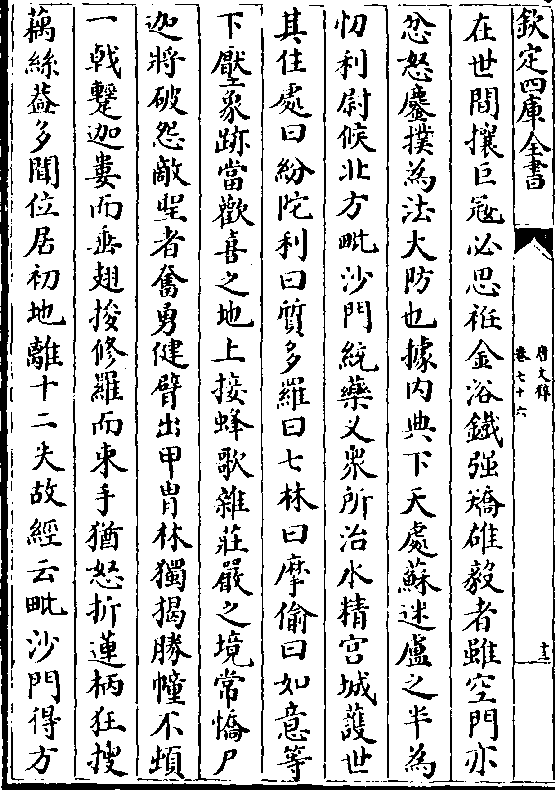 欽定四庫全書
唐文粹
卷七十六
十三
在世間攘巨寇必思袵金浴鐵强矯碓毅者雖空門亦
忿怒鏖撲為法大防也據内典下天處蘇迷盧之半為
忉利尉候北方毗沙門統藥义衆所治水精宫城䕶世
其住處曰紛陀利曰質多羅曰七林曰摩偷曰如意等
下壓象跡當歡喜之地上接蜂歌雜莊嚴之境常憍尸
迦將破怨敵聖者奮勇健臂出甲胄林獨揭勝幢不煩
一戟蹔迦婁而垂翅捘修羅而束手猶怒折蓮柄狂搜
藕絲葢多聞位居初地離十二失故經云毗沙門得方